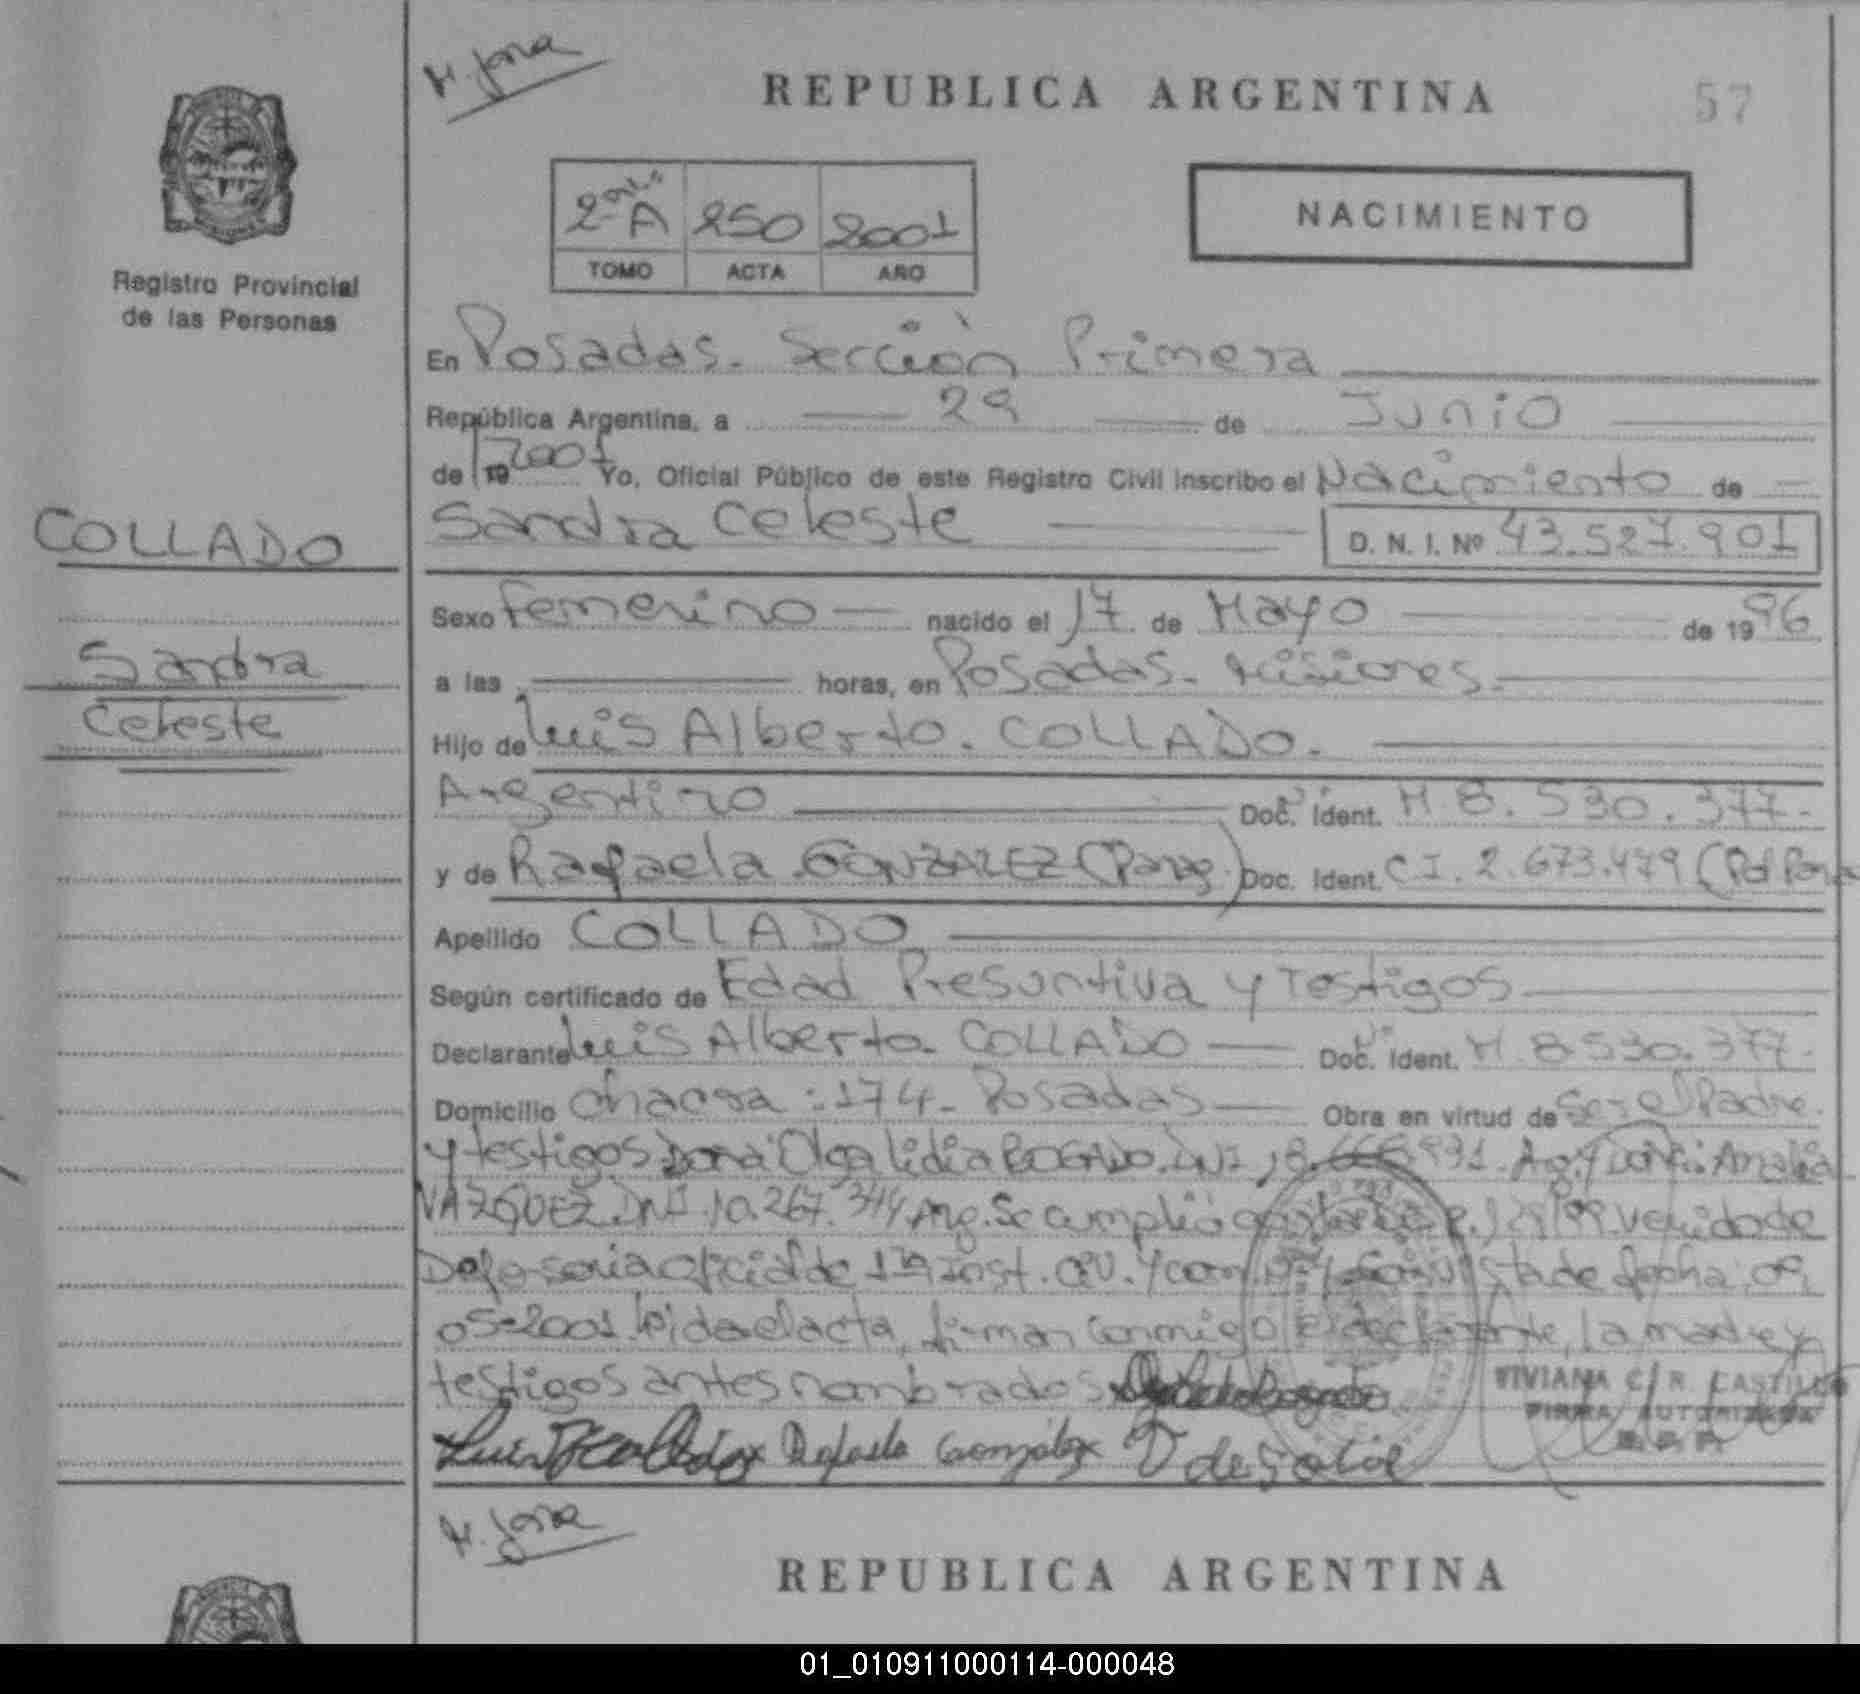 H. Jona
REPUBLICA ARGENTINA
57
2ª A 250 2001
TOMO ACTA AÑO
NACIMIENTO
Registro Provincial
de las Personas
En Posadas. Sección Primera
República Argentina, a 29 de Junio
de 19 2001 Yo, Oficial Público de este Registro Civil inscribo el Nacimiento de
Sandra Celeste
D. N. I. Nº 43.527.901
COLLADO
Sandra
Celeste
Sexo femenino nacido el 17 de Mayo de 19 96
a las horas, en Posadas. Misiones.
Hijo de Luis Alberto. COLLADO.
Argentino Doc. Ident. M 8.530.377.
y de Rafaela GONZALEZ (Parag.) Doc. Ident. C I. 2.673.479 (Pol
Apellido COLLADO
Según certificado de Edad Presuntiva y Testigos
Declarante Luis Alberto COLLADO Doc. Ident. M. 8530.377.
Domicilio Chacra: 174. Posadas Obra en virtud de Ser el Padre.
y testigos Doña Olga Lidia ROGADO. DNI Arg. y Amalia
VAZQUEZ. DNI. 10.267.344 Arg. Se cumplió venido de
oficial de 1ra Inst. Civ. y Com. vista de fecha 09
05-2001 leida el acta, firman conmigo el declarante, la madre y
testigos antes nombrados
Rafaela González
VIVIANA C. R. CASTILLO
FIRMA AUTORIZADA
R. P. P.
H. Jona
REPUBLICA ARGENTINA
01_010911000114-000048